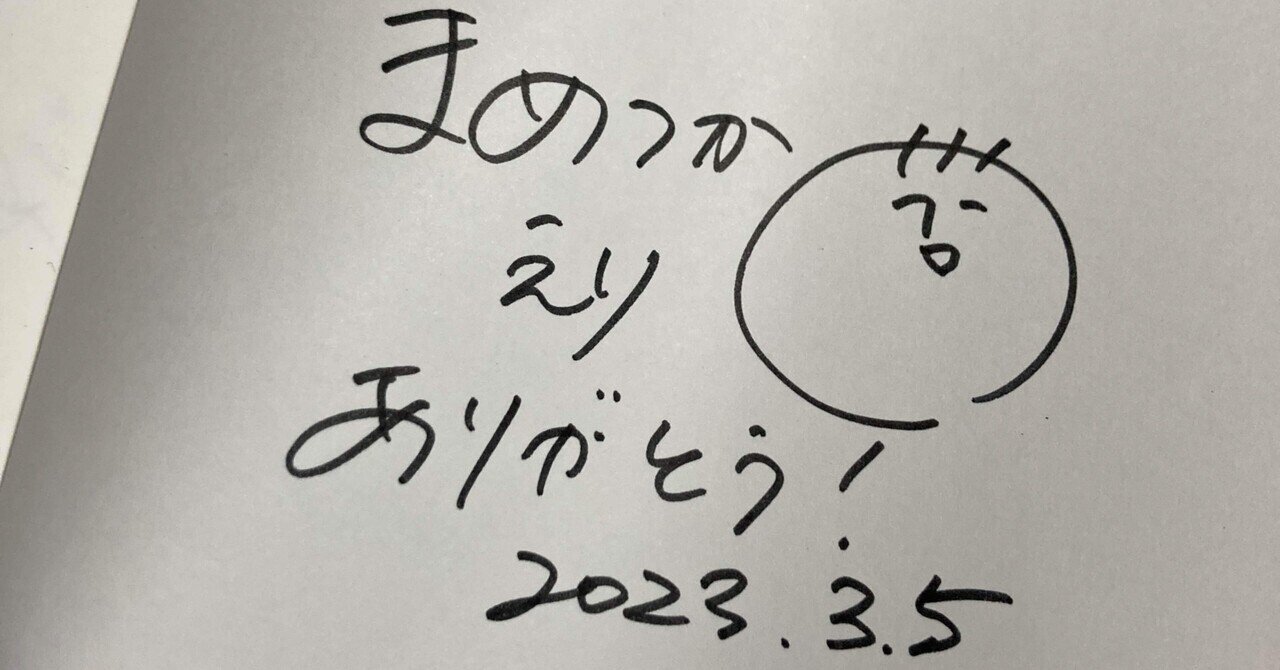 まめつか
えり
ありがとう!
2023.3.5